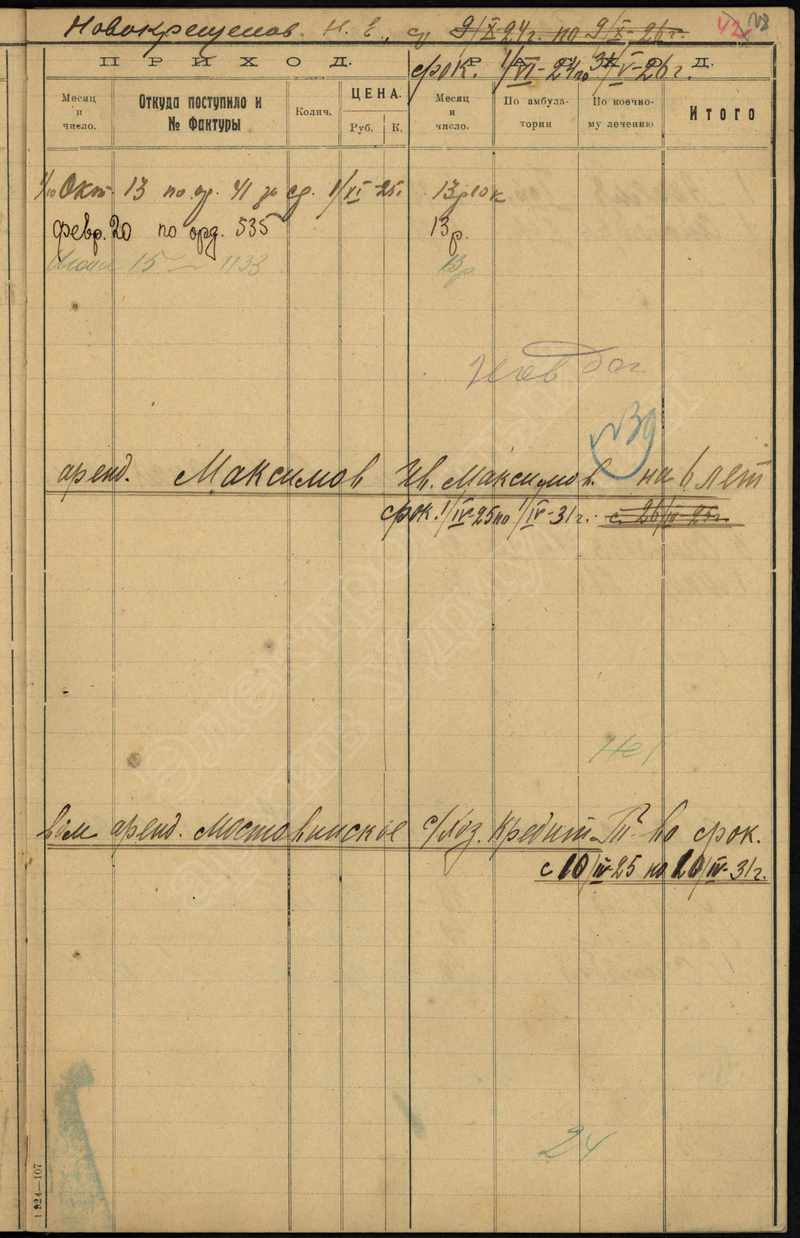 Новокрещенов. Н. Е., с 9/X-24г. по 9/X-26г. 42
ПРИХОД. РАСХОД.
срок. 1/VI-24 по 31/V-26г.
Месяц и число. Откуда поступило и № Фактуры Колич. ЦЕНА. Руб. К. Месяц и число. По амбулатории По коечному лечению Итого
Окт. 13 по ор. 41 за ср. 1/VI-25г. 13р 10к
февр. 20 по орд. 535 13 р.
Июня 15 — 1133 13р
Нов дог
№ 39
аренд. Максимов Ив. Максимов. на 6 лет
срок. 1/IV-25 по 1/IV-31г. с 26/IV-25г
аренд. Мостовинское с/хоз. Кредит. Т-во срок.
с 10/IV-25 по 20/IV-31г.
24
1924—107